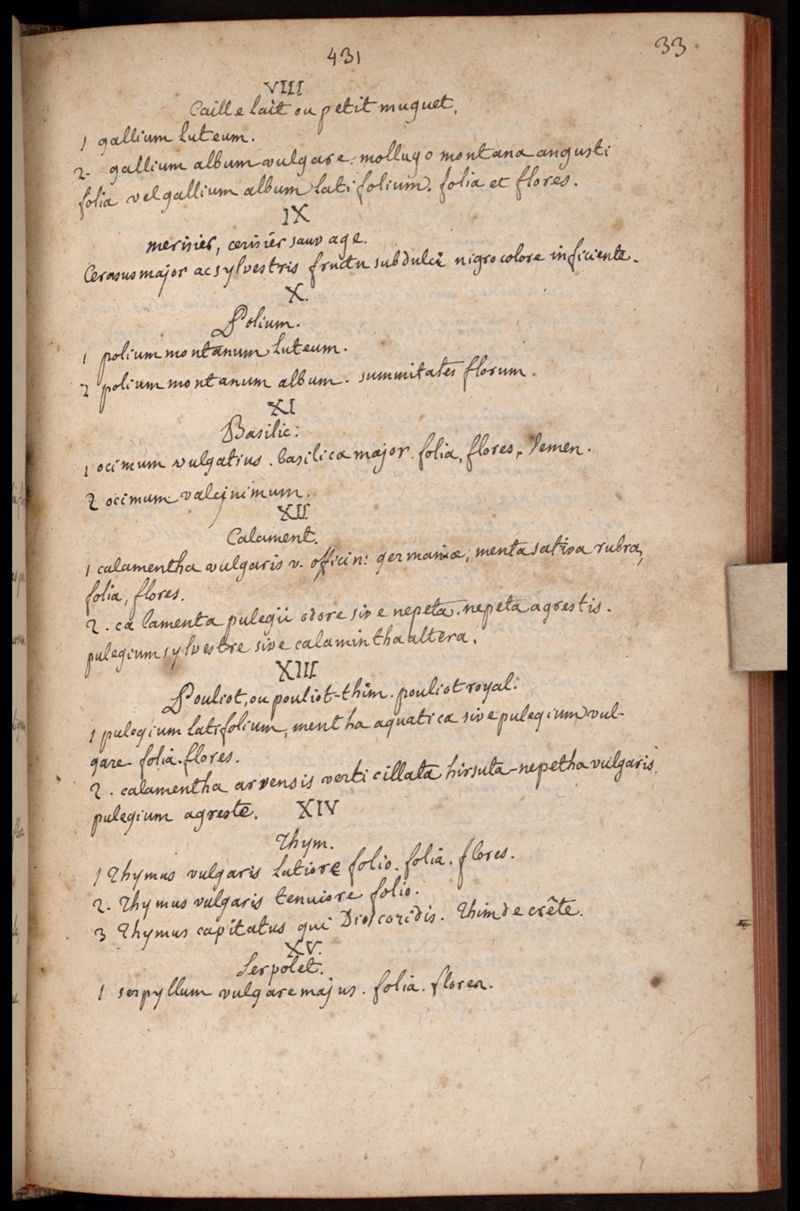 431
33
VIII
Caille lait ou petit muguet.
1 gallium luteum.
2. gallium album vulgare. mollugo montana angusti
folia vel gallium album latifolium. folia et flores.
IX
merisier, cerisier sauvage.
Cerasus major ac sylvestris fructu subdulci nigro colore inficiente.
X.
Polium.
1 polium montanum luteum.
2 polium montanum album. summitates florum.
XI
Basilic:
1 ocimum vulgatius. basilica major. folia, flores, semen.
2 ocimum
XII
Calament.
1 calamentha vulgaris v. officin: germaniæ; menta sativa rubra,
folia, flores.
2. calamenta pulegii odore sive nepeta. nepeta agrestis.
pulegium sylvestre sive calamintha altera.
XIII
Pouliot, ou pouliot-thim. pouliot royal.
1 pulegium latifolium, mentha aquatica sive pulegium vul-
gare folia. flores.
2. calamentha arvensis verticillata hirsuta-nepetha vulgaris
pulegium agreste. XIV
Thym.
1 Thymus vulgaris latiore folio. folia. flores.
2. Thymus vulgaris tenuiore folio.
3 Thymus capitatus qui Dioscoridis. Thim de crête.
XV.
Serpolet.
1 serpyllum vulgare majus. folia.